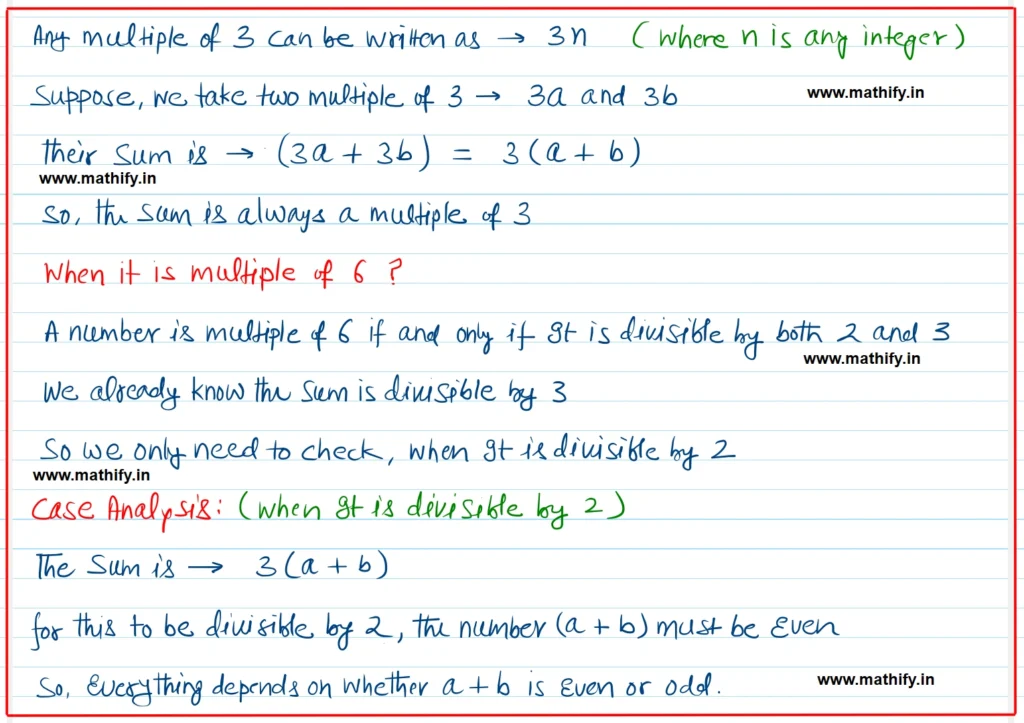 Any multiple of 3 can be written as → 3n (where n is any integer)
Suppose, we take two multiple of 3 → 3a and 3b
www.mathify.in
their sum is → (3a + 3b) = 3(a + b)
www.mathify.in
So, the sum is always a multiple of 3
When it is multiple of 6 ?
A number is multiple of 6 if and only if It is divisible by both 2 and 3
www.mathify.in
We already know the sum is divisible by 3
So we only need to check, when It is divisible by 2
www.mathify.in
Case Analysis: (when It is divisible by 2)
The Sum is → 3(a + b)
for this to be divisible by 2, the number (a + b) must be Even
So, Everything depends on whether a + b is Even or odd.
www.mathify.in